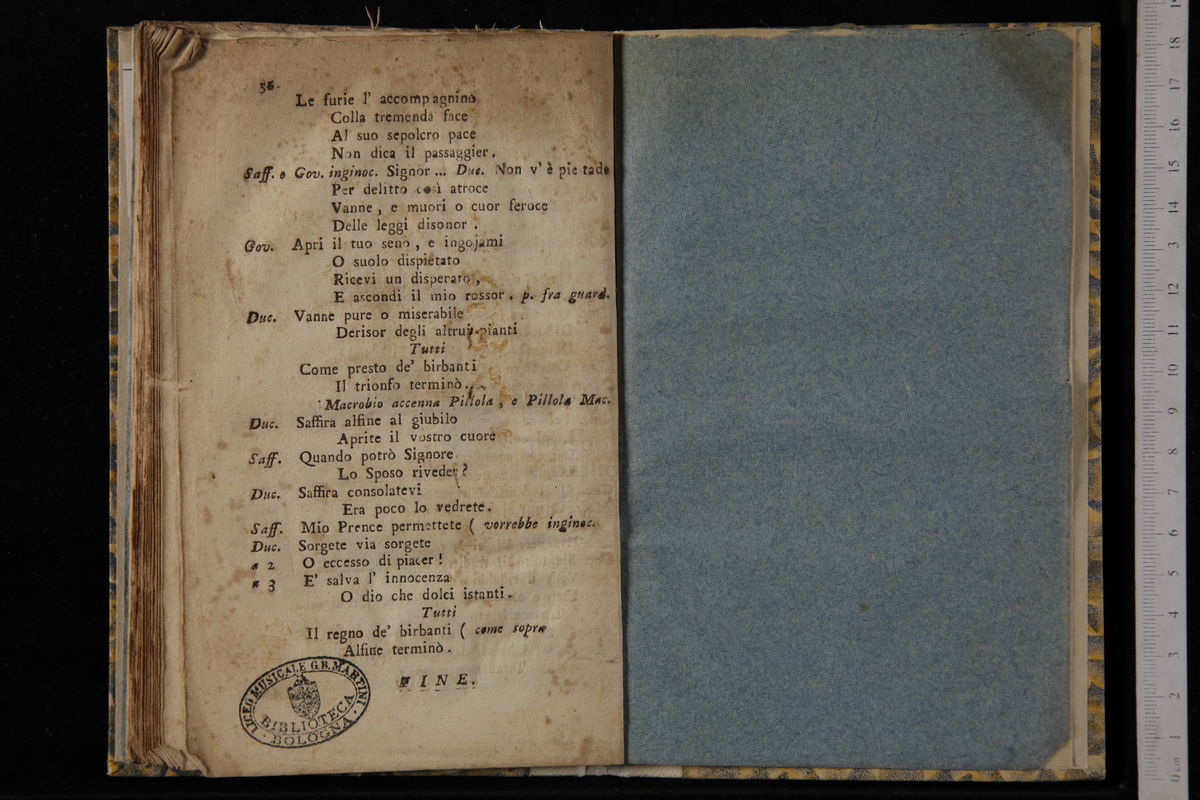 56.
Le furie l' accompagnino
Colla tremenda face
Al suo sepolcro pace
Non dica il passaggier.
Saff. e Gov. inginoc. Signor ... Duc. Non v' è pie tade
Per delitto così atroce
Vanne, e muori o cuor feroce
Delle leggi disonor.
Gov. Apri il tuo seno, e ingojami
O suolo dispietato
Ricevi un disperato,
E ascondi il mio rossor. p. fra guard.
Duc. Vanne pure o miserabile
Derisor degli altrui pianti
Tutti
Come presto de' birbanti
Il trionfo terminò.
Macrobio accenna Pillola, e Pillola Mac.
Duc. Saffira alfine al giubilo
Aprite il vostro cuore
Saff. Quando potrò Signore
Lo Sposo riveder?
Duc. Saffira consolatevi
Era poco lo vedrete.
Saff. Mio Prence permettete ( vorrebbe inginoc.
Duc. Sorgete via sorgete
a 2 O eccesso di piacer!
a 3 E' salva l' innocenza
O dio che dolci istanti.
Tutti
Il regno de' birbanti ( come sopra
Alfine terminò.
FINE.
LICEO MUSICALE G.B. MARTINI
BIBLIOTECA
BOLOGNA
0 cm 1 2 3 4 5 6 7 8 9 10 11 12 3 14 15 16 17 18 19